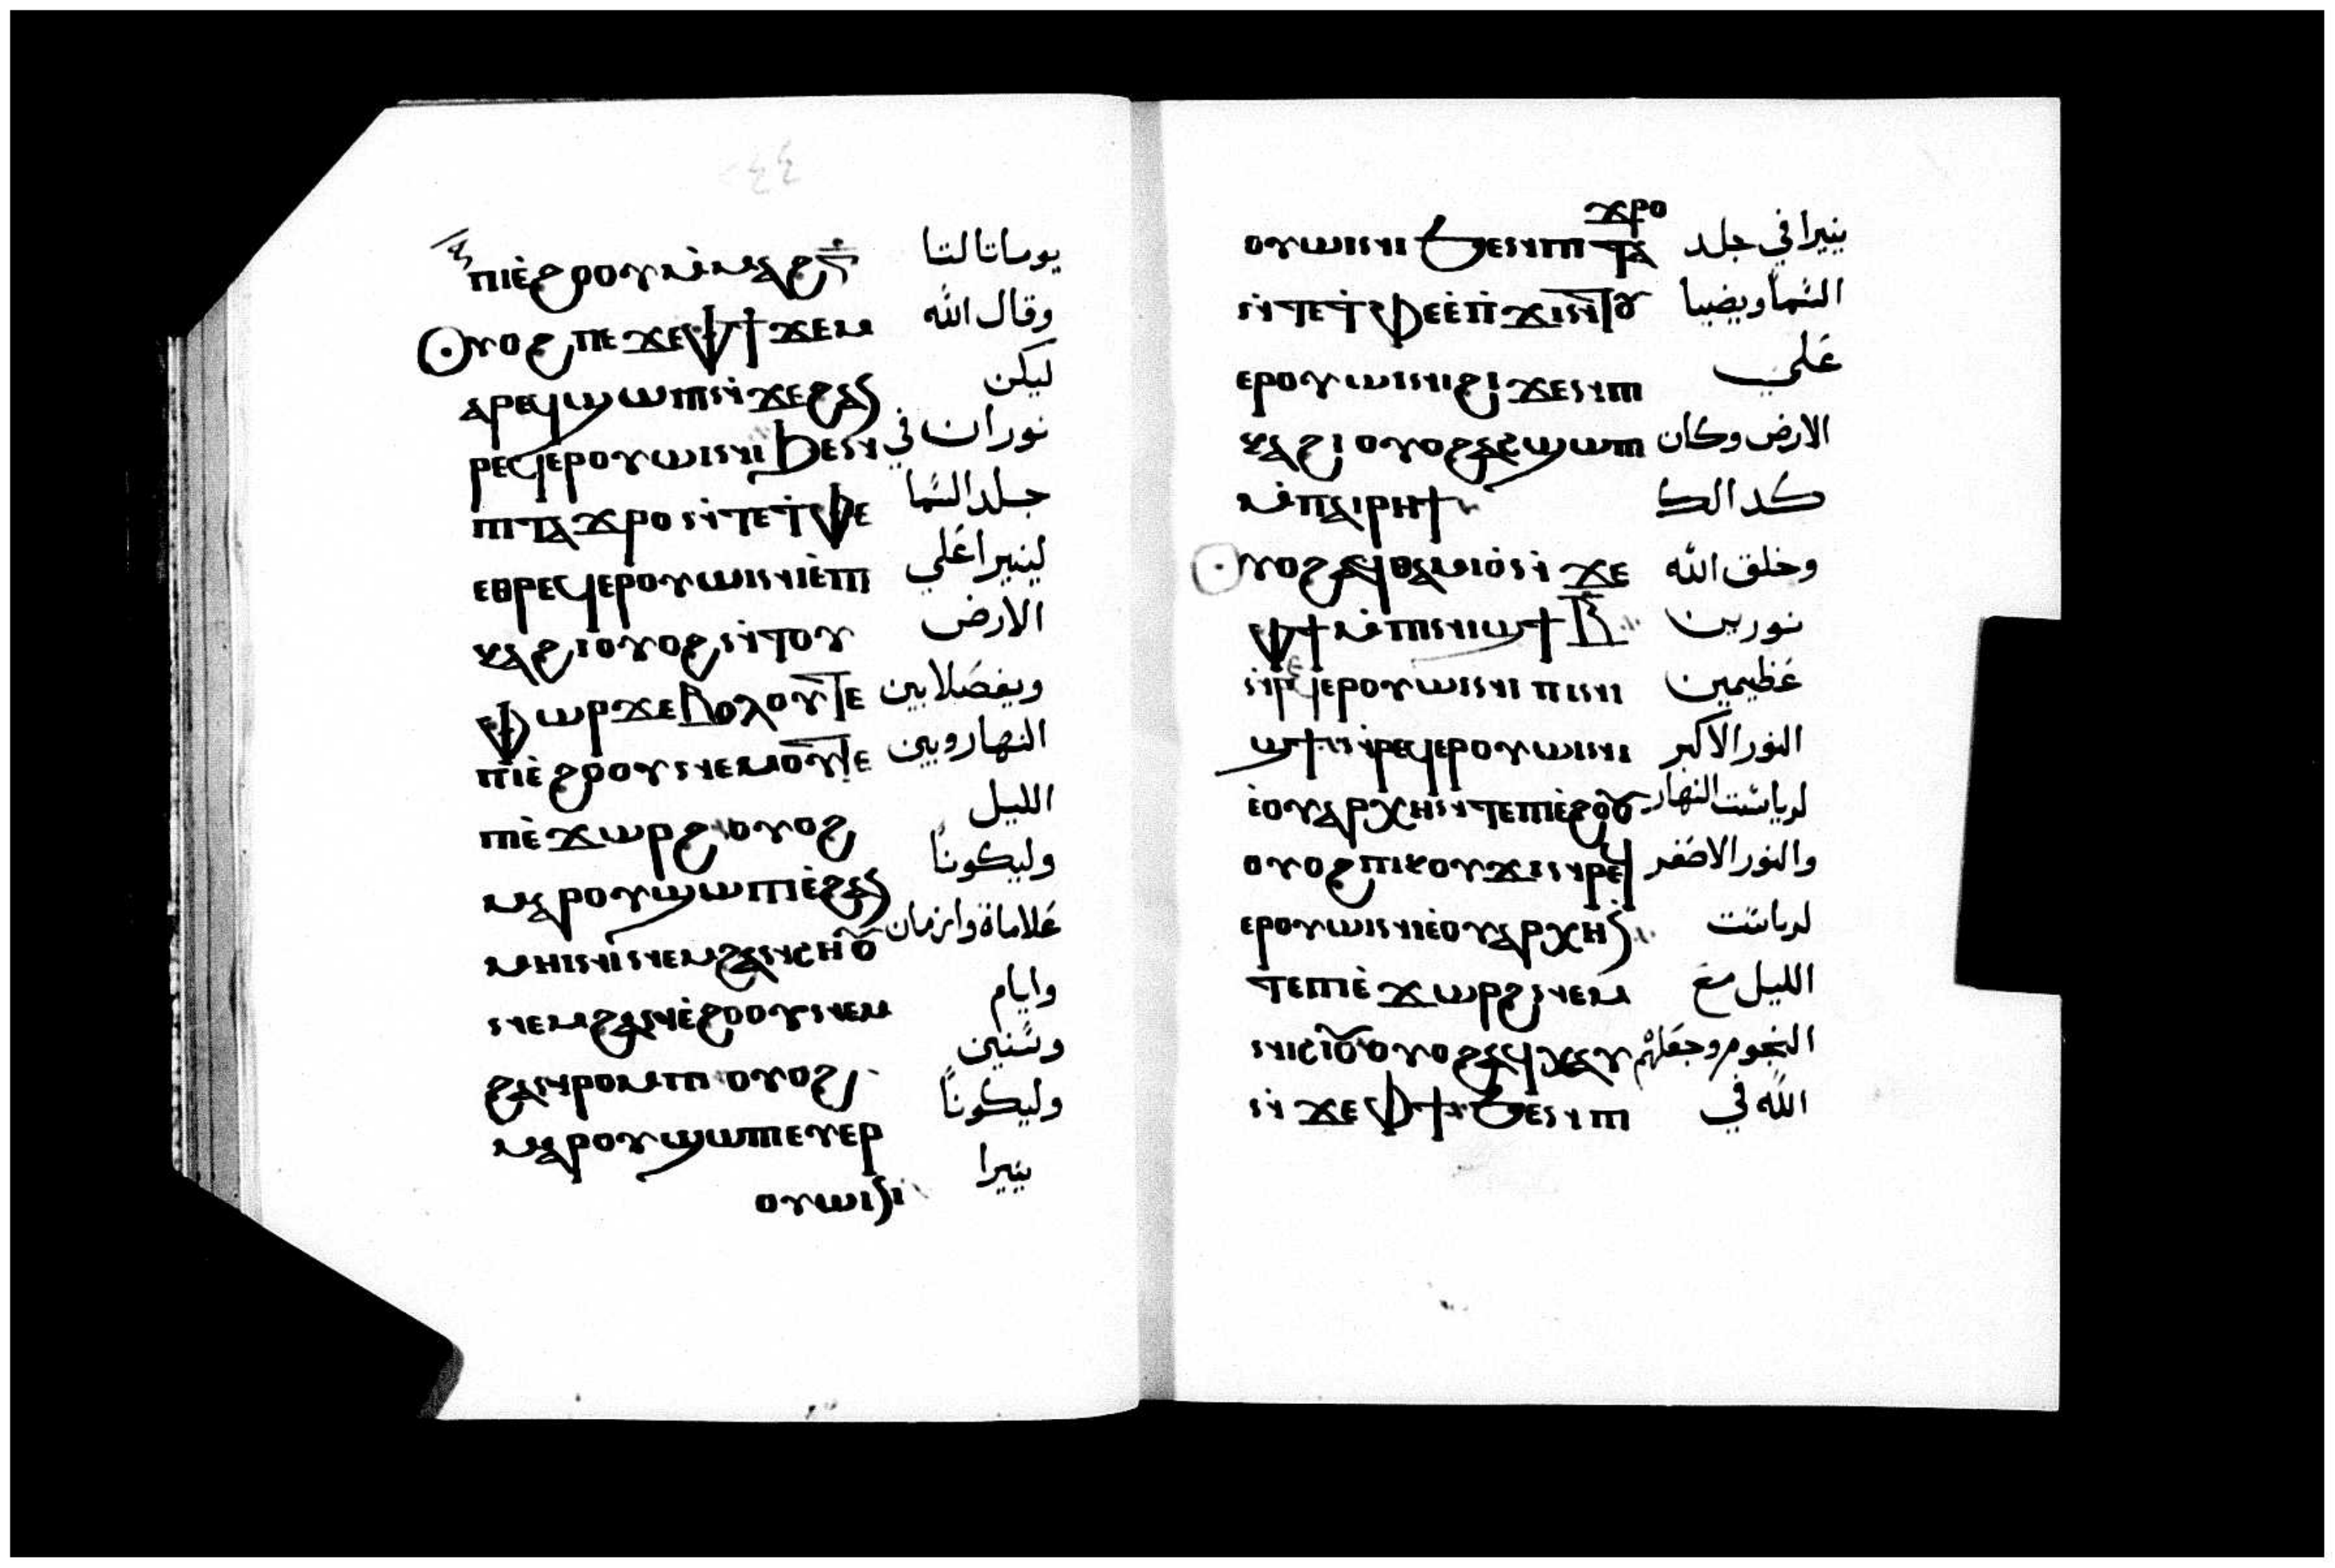 ⲡⲓⲉ̀ϩⲟⲟⲩ ⲙ̀ⲙⲁϩⲅ̅ يوما تالتا
Ⲟⲩⲟϩ ⲡⲉϫⲉⲫϯ ϫⲉⲙ وقال الله
ⲁⲣⲉϥϣⲱⲡⲓ ⲛ̀ϫⲉϩⲁⲛ ليكن
ⲣⲉϥⲉⲣⲟⲩⲱⲓⲛⲓ ϧⲉⲛ نوران في
ⲡⲓⲧⲁϫⲣⲟ ⲛ̀ⲧⲉⲧ̀ⲫⲉ جلد السما
ⲉⲑⲣⲉϥⲉⲣⲟⲩⲱⲓⲛⲓ ⲉ̀ⲡⲓ لينيرا علي
ⲕⲁϩⲓ ⲟⲩⲟϩ ⲛ̀ⲧⲟⲩ الارض
ⲫⲱⲣϫ ⲉⲃⲟⲗ ⲟⲩⲧⲉ ويفصلا بين
ⲡⲓⲉ̀ϩⲟⲟⲩ ⲛⲉⲙ ⲟⲩⲧⲉ النهار وبين
ⲡⲓⲉ̀ϫⲱⲣϩ ⲟⲩⲟϩ الليل
ⲙⲁⲣⲟⲩϣⲱⲡⲓ ⲉ̀ϩⲁⲛ وليكونا
ⲙⲏⲓⲛⲓ ⲛⲉⲙ ϩⲁⲛⲥⲏⲟⲩ علاماة وازمان
ⲛⲉⲙ ϩⲁⲛⲉ̀ϩⲟⲟⲩ ⲛⲉⲙ وايام
ϩⲁⲛⲣⲟⲙⲡⲓ ⲟⲩⲟϩ وسنين
ⲙⲁⲣⲟⲩϣⲱⲡⲓ ⲉⲩⲉⲣ وليكونا
ⲟⲩⲱⲓⲛⲓ ينيرا
ϫⲣⲟ
ⲟⲩⲱⲓⲛⲓ ϧⲉⲛ ⲡⲓⲧⲁ ينيرا في جلد
ⲛ̀ⲧⲉⲧ̀ⲫⲉ ⲉ̀ⲡ̀ϫⲓⲛⲧⲟⲩ السما ويضيا
ⲉⲣⲟⲩⲱⲓⲛⲓ ϩⲓϫⲉⲛ ⲡⲓ علي
ⲕⲁϩⲓ ⲟⲩⲟϩ ⲁⲥϣⲱⲡⲓ الارض وكان
ⲙ̀ⲡⲁⲓⲣⲏϯ كدالك
Ⲟⲩⲟϩ ⲁϥⲑⲁⲙⲓⲟ̀ ⲛ̀ϫⲉ وخلق الله
ⲫϯ ⲙ̀ⲡⲓⲛⲓϣϯ ⲃ̅ نورين
ⲛ̀ⲣⲉϥⲉⲣⲟⲩⲱⲓⲛⲓ ⲡⲓⲛⲓ عظيمين
ϣϯ ⲛ̀ⲣⲉϥⲉⲣⲟⲩⲱⲓⲛⲓ النور الاكبر
ⲉ̀ⲟⲩⲁⲣⲭⲏ ⲛ̀ⲧⲉ ⲡⲓⲉ̀ϩⲟⲟⲩ لرياست النهار
ⲟⲩⲟϩ ⲡⲓⲕⲟⲩϫⲓ ⲛ̀ⲣⲉϥ والنور الاصغر
ⲉⲣⲟⲩⲱⲓⲛⲓ ⲉ̀ⲟⲩⲁⲣⲭⲏ ⲛ̀ لرياست
ⲧⲉ ⲡⲓⲉ̀ϫⲱⲣϩ ⲛⲉⲙ الليل مع
ⲛⲓⲥⲓⲟⲩ ⲟⲩⲟϩ ⲁϥⲭⲁⲩ النجوم وجعلهم
ⲛ̀ϫⲉⲫϯ ϧⲉⲛ ⲡⲓ الله في